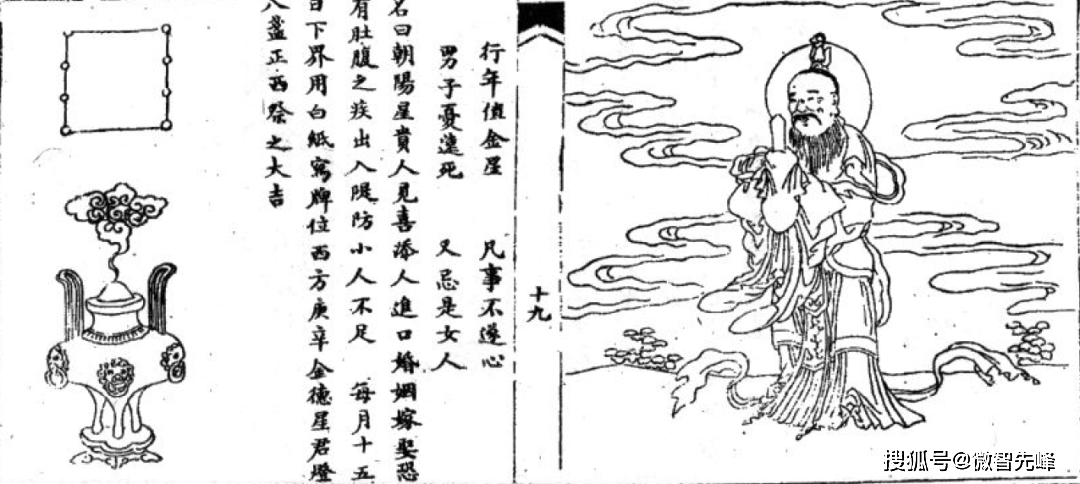 行年值金星 凡事不遂心
男子憂遠死 又忌是女人
名曰朝陽星貴人見喜添人進口婚姻嫁娶恐
有肚腹之疾出入隄防小人不足 每月十五
日下界用白紙寫牌位西方庚辛金德星君燈
八盞正西祭之大吉
十九
搜狐号@微智先峰